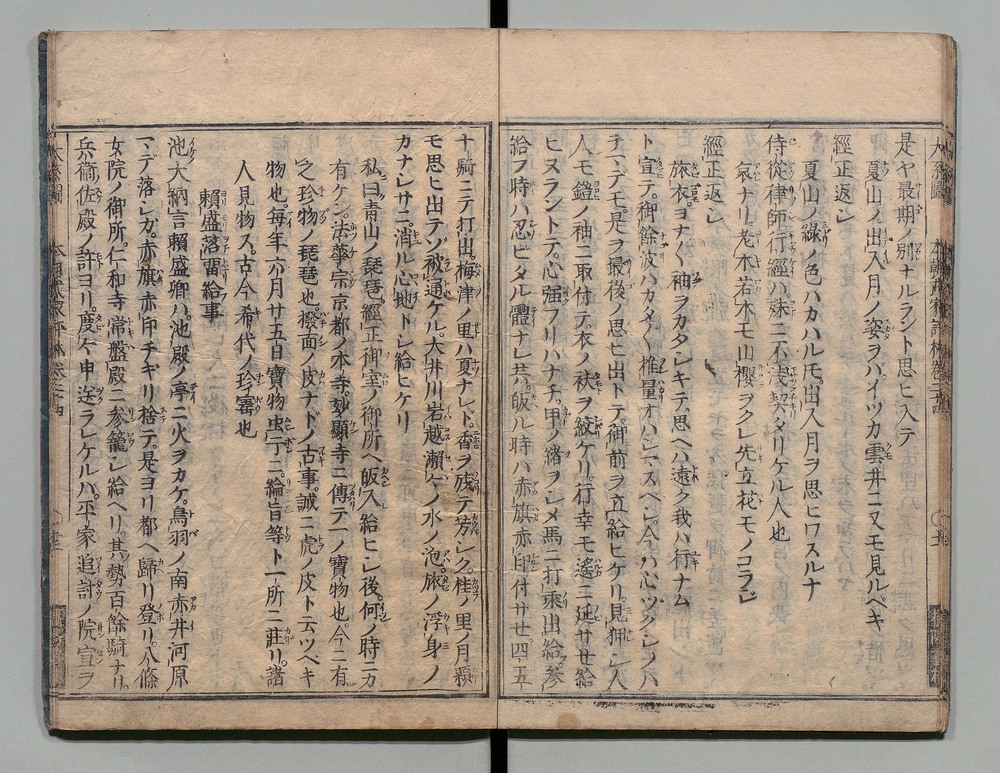 是ヤ最期ノ別ナルラント思ヒ入テ
夏山ノ出入月ノ姿ヲバイツカ雲井ニ又モ見ルベキ
經正返シ
夏山ノ緑ノ色ハカハルモ出入月ヲ思ヒワスルナ
侍從律師行經ハ殊ニ不淺契タリケル人也
哀ナリ老木若木モ山櫻ヲクレ先立花モノコラジ
經正返シ
旅衣ヨナ〱袖ヲカタシキテ思ヘハ遠ク我ハ行ナム
ト宣テ御餘波ハカタ〱推量オハシマスベシ今ハ心ヅクシノハ
テマデモ是ヲ最後ノ思ヒ出トテ御前ヲ立給ヒケリ見押シ人
人モ鎧ノ袖ニ取付テ衣ノ袂ヲ絞ケリ行幸モ遙ニ延サセ給
ヒヌラントテ心強フリハナチ甲ノ緒ヲシメ馬ニ打乘出給参
給フ時ハ忍ビタル體ナレ共皈ル時ハ赤旗赤印付サセ四五
十騎ニテ打出梅津ノ里ハ夏ナレド香ヲ殘テ芳シク桂ノ里ノ月影
モ思ヒ出テゾ被通ケル大井川岩越瀬〻ノ水ノ泡旅ノ浮身ノ
カナシサニ消ル心地トシ給ヒケリ
私曰青山ノ琵琶經正御室ノ御所ヘ皈入給ヒシ後何ノ時ニカ
有ケン法華宗京都ノ本寺妙顯寺ニ傳テ一ノ寶物也今ニ有
之珍物ノ琵琶也撥面ノ皮ナドノ古事誠ニ虎ノ皮ト云ツベキ
物也毎年六月廿五日寶物虫干ニ綸旨等ト一所ニ莊リ諸
人見物ス古今希代ノ珍寳也
賴盛落畱給事
池大納言賴盛卿ハ池殿ノ亭ニ火ヲカケ鳥羽ノ南赤井河原
マデ落シカ赤旗赤印チギリ捨テ是ヨリ都ヘ歸リ登リ八條
女院ノ御所仁和寺常盤殿ニ参籠シ給ヘリ其勢百餘騎ナリ
兵衞佐殿ノ許ヨリ度〻申送ラレケルハ平家追討ノ院宣ヲ